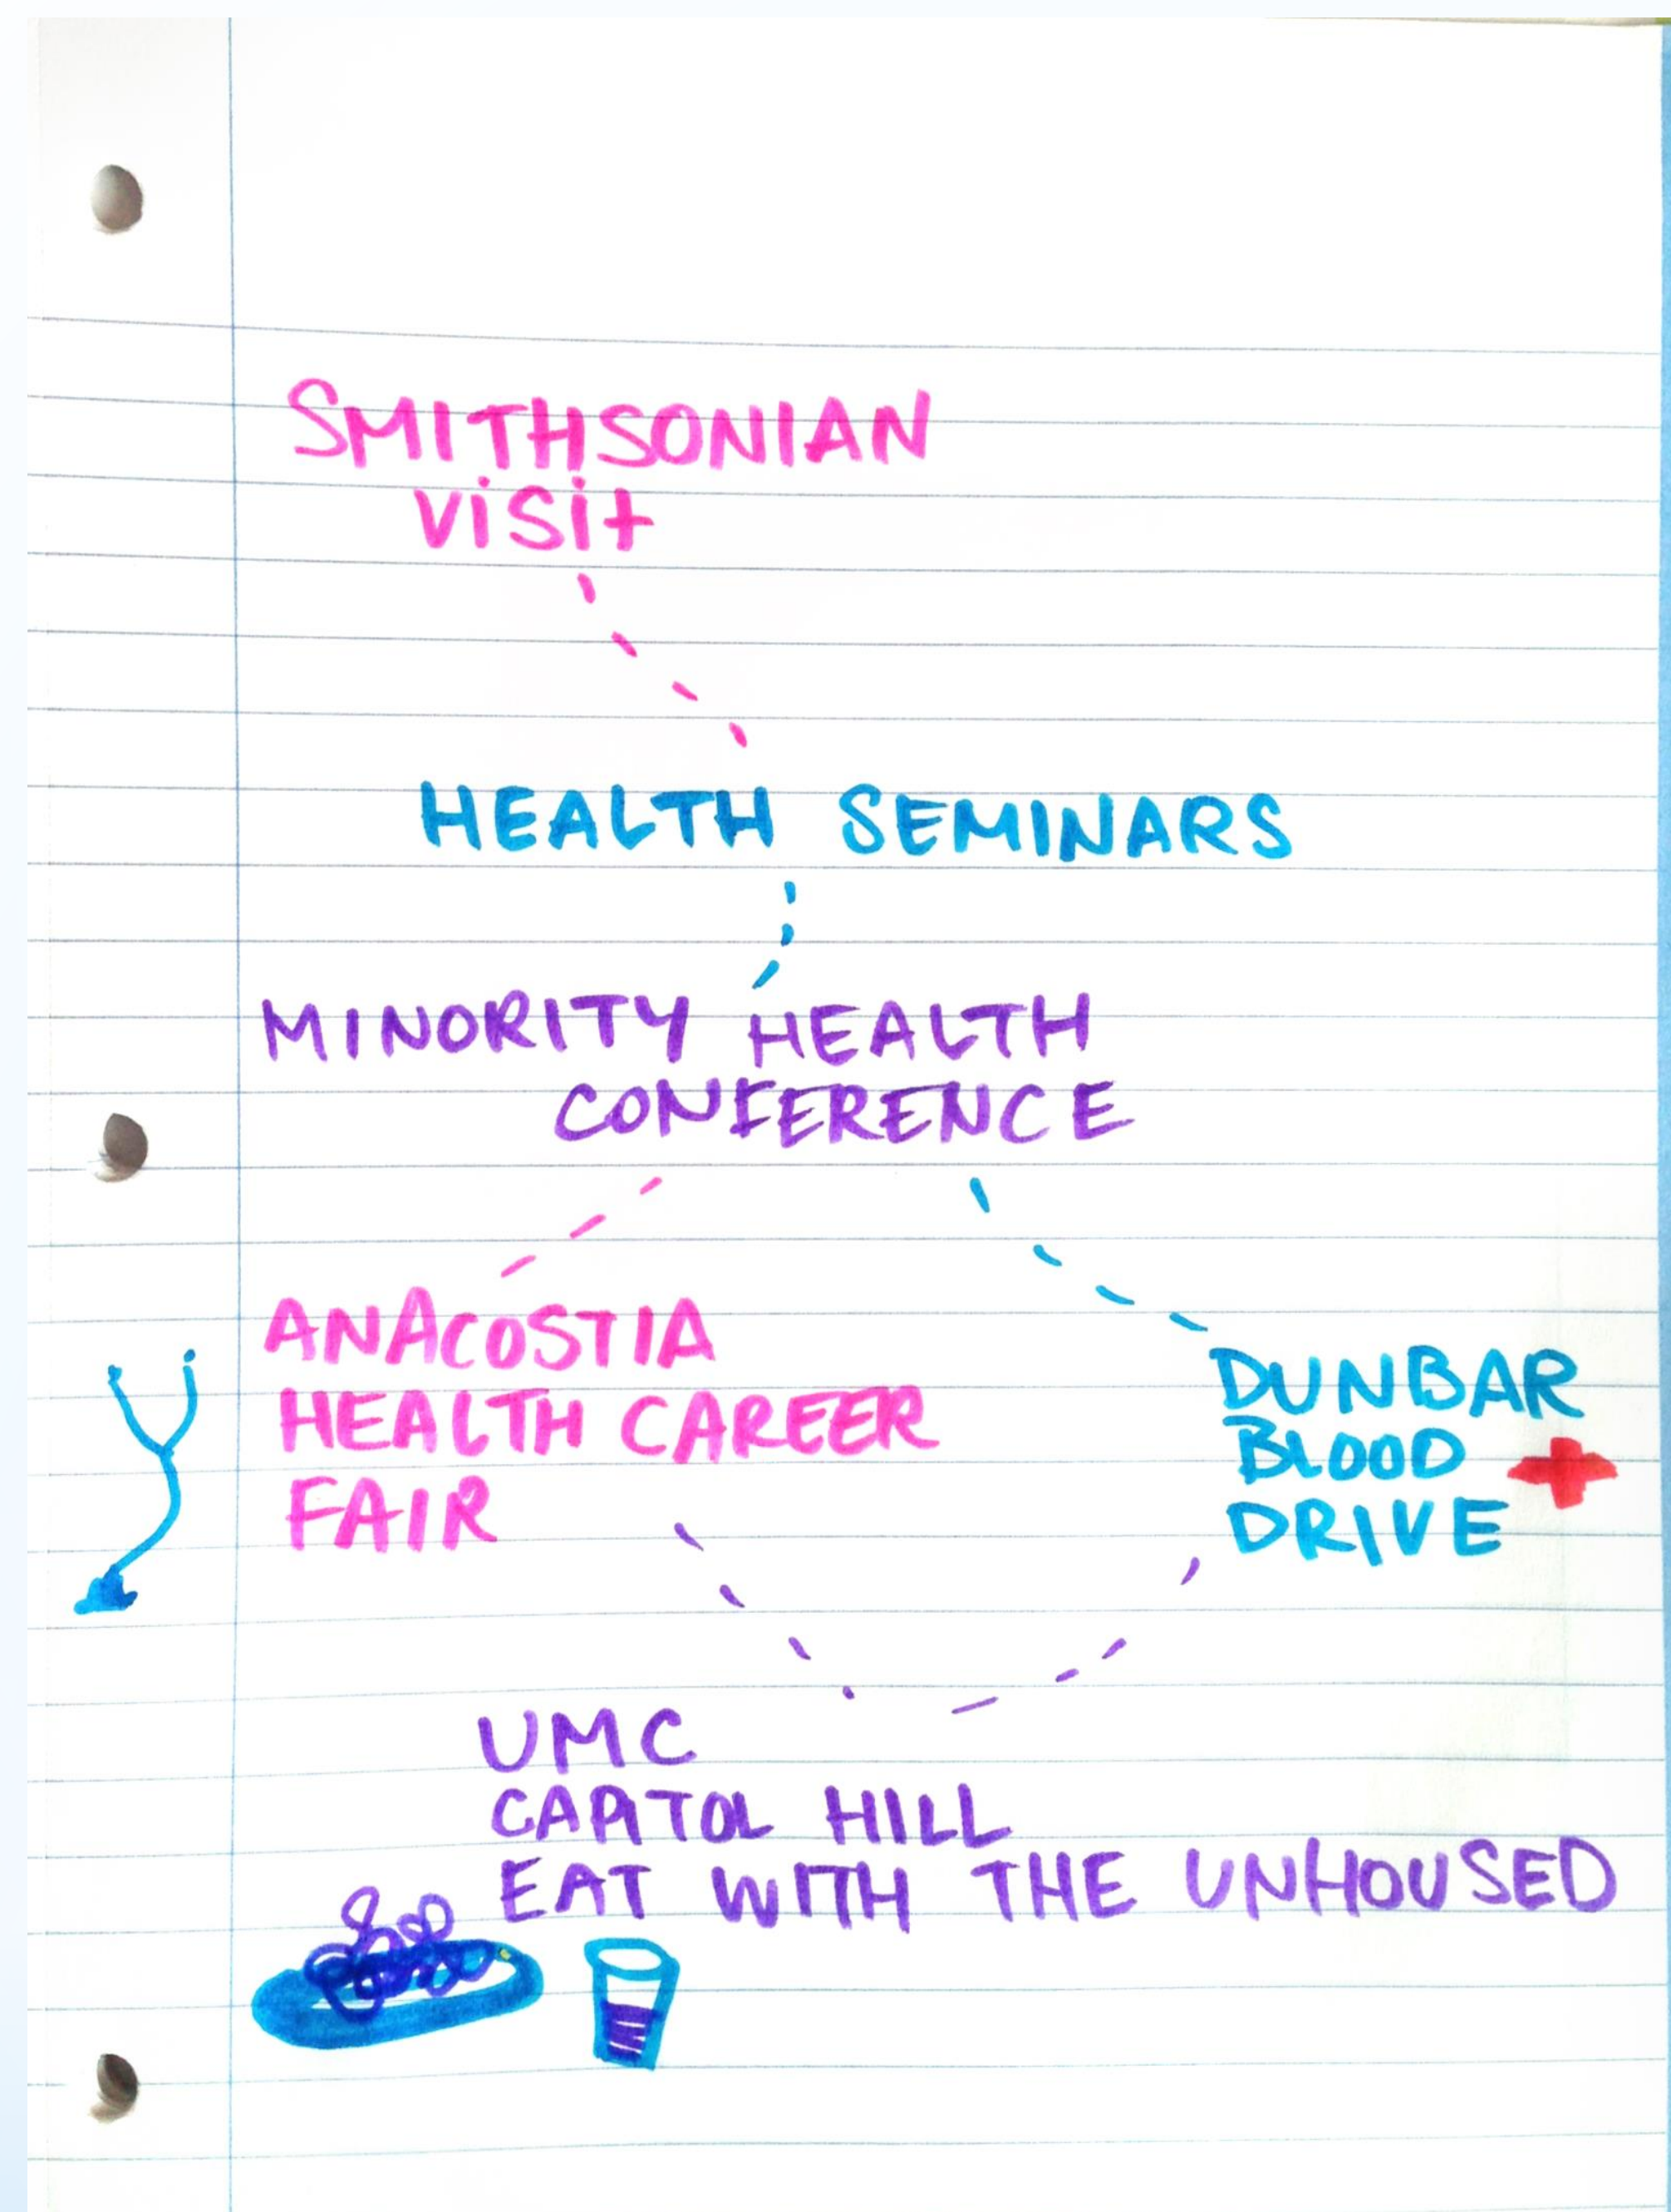 SMITHSONIAN
VISIT
HEALTH SEMINARS
MINORITY HEALTH
CONFERENCE
ANACOSTIA
HEALTH CAREER
FAIR
DUNBAR
BLOOD
DRIVE
UMC
CAPITOL HILL
EAT WITH THE UNHOUSED